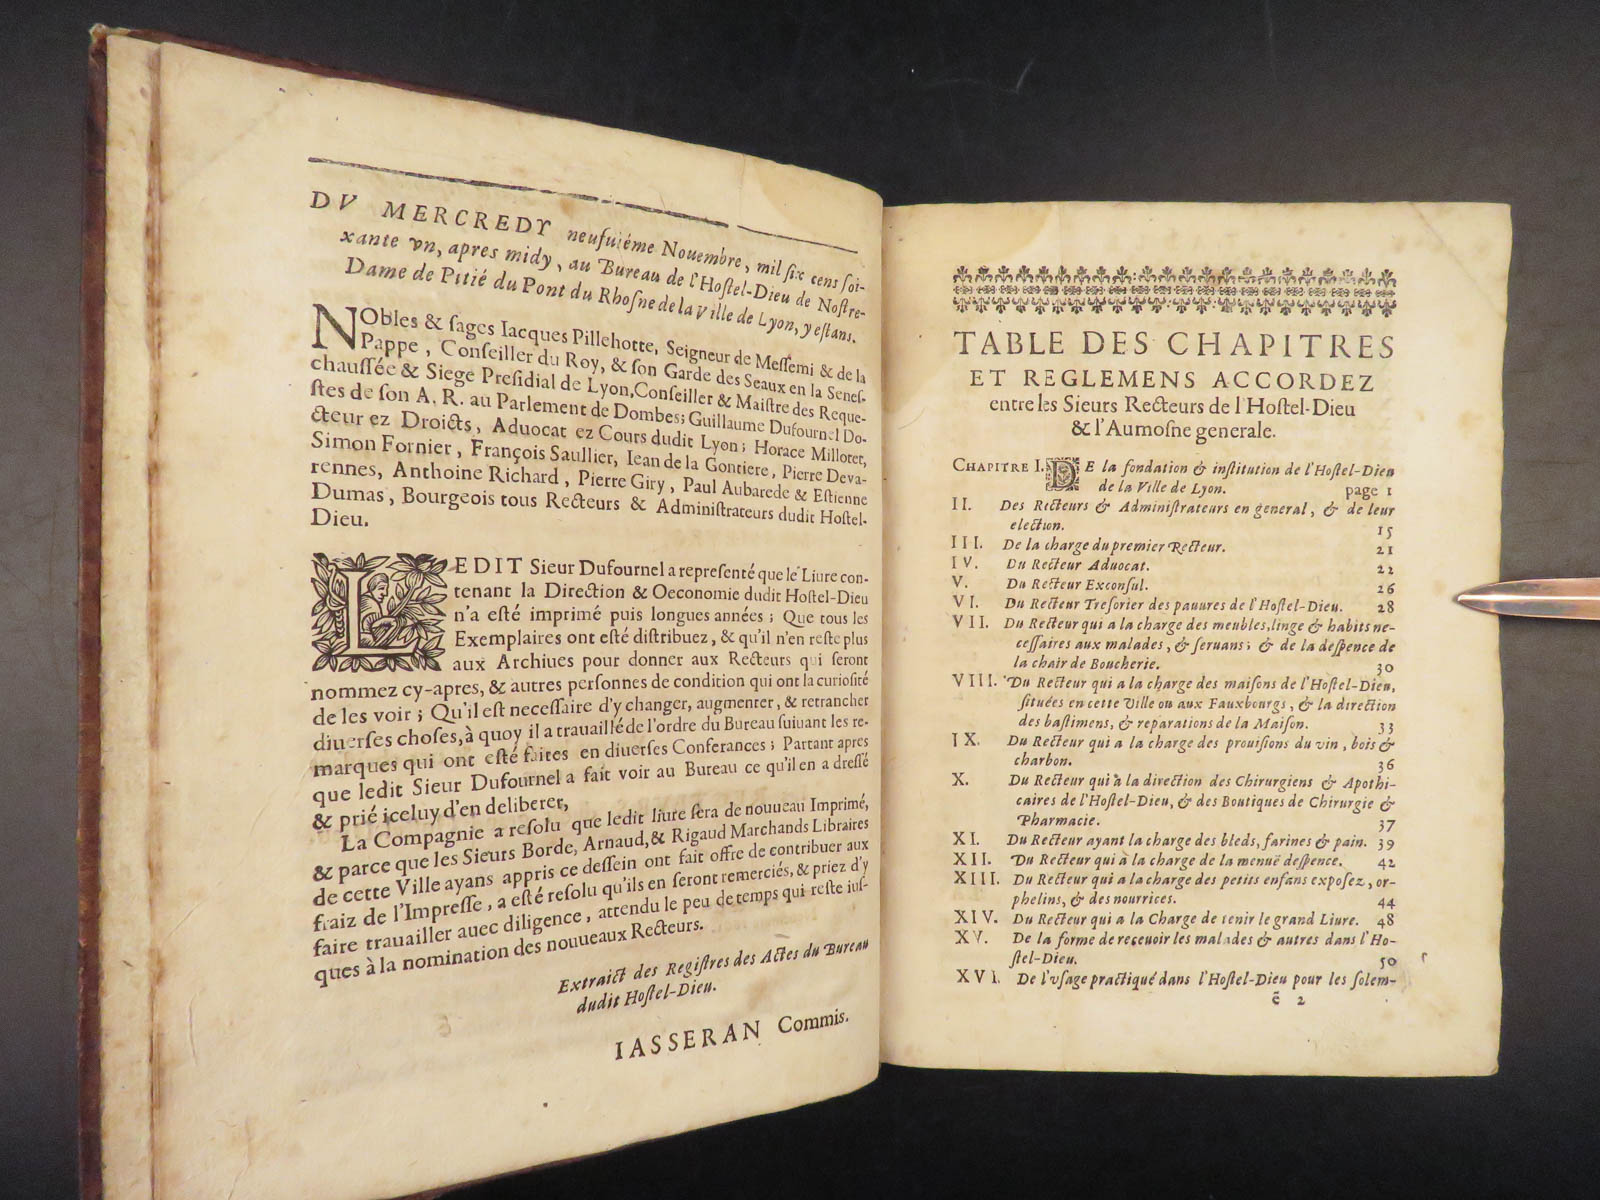 DV MERCREDY neufuiéme Nouembre, mil ſix cens ſoi-
xante vn, apres midy, au Bureau de l'Hoſtel-Dieu de Noſtre-
Dame de Pitié du Pont du Rhoſne de la Ville de Lyon, y eſtans.
NObles & ſages Iacques Pillehotte, Seigneur de Meſſemi & de la
Pappe, Conſeiller du Roy, & ſon Garde des Seaux en la Seneſ-
chauſſée & Siege Preſidial de Lyon, Conſeiller & Maiſtre des Reque-
ſtes de ſon A. R. au Parlement de Dombes; Guillaume Dufournel Do-
cteur ez Droicts, Aduocat ez Cours dudit Lyon; Horace Millotet,
Simon Fornier, François Saullier, Iean de la Gontiere, Pierre Deva-
rennes, Anthoine Richard, Pierre Giry, Paul Aubarede & Eſtienne
Dumas, Bourgeois tous Recteurs & Adminiſtrateurs dudit Hoſtel-
Dieu.
LEDIT Sieur Dufournel a repreſenté que le Liure con-
tenant la Direction & Oeconomie dudit Hoſtel-Dieu
n'a eſté imprimé puis longues années; Que tous les
Exemplaires ont eſté diſtribuez, & qu'il n'en reſte plus
aux Archiues pour donner aux Recteurs qui ſeront
nommez cy-apres, & autres perſonnes de condition qui ont la curioſité
de les voir; Qu'il est neceſſaire d'y changer, augmenter, & retrancher
diuerſes choſes, à quoy il a trauaillé de l'ordre du Bureau ſuiuant les re-
marques qui ont eſté faites en diuerſes Conferances; Partant apres
que ledit Sieur Dufournel a fait voir au Bureau ce qu'il en a dreſſé
& prié iceluy d'en deliberer,
La Compagnie a reſolu que ledit liure ſera de nouueau Imprimé,
& parce que les Sieurs Borde, Arnaud, & Rigaud Marchands Libraires
de cette Ville ayans appris ce deſſein ont fait offre de contribuer aux
fraiz de l'Impreſſe, a eſté reſolu qu'ils en ſeront remerciés, & priez d'y
faire trauailler auec diligence, attendu le peu de temps qui reſte iuſ-
ques à la nomination des nouueaux Recteurs.
Extraict des Regiſtres des Actes du Bureau
dudit Hoſtel-Dieu.
IASSERAN Commis.
TABLE DES CHAPITRES
ET REGLEMENS ACCORDEZ
entre les Sieurs Recteurs de l'Hoſtel-Dieu
& l'Aumoſne generale.
CHAPITRE I. DE la fondation & inſtitution de l'Hoſtel-Dieu
de la Ville de Lyon. page 1
II. Des Recteurs & Adminiſtrateurs en general, & de leur
election. 15
III. De la charge du premier Recteur. 21
IV. Du Recteur Aduocat. 22
V. Du Recteur Exconſul. 26
VI. Du Recteur Treſorier des pauures de l'Hoſtel-Dieu. 28
VII. Du Recteur qui a la charge des meubles, linge & habits ne-
ceſſaires aux malades, & ſeruans; & de la deſpence de
la chair de Boucherie. 30
VIII. Du Recteur qui a la charge des maiſons de l'Hoſtel-Dieu,
ſituées en cette Ville ou aux Fauxbourgs, & la direction
des baſtimens, & reparations de la Maiſon. 33
IX. Du Recteur qui a la charge des prouiſions du vin, bois &
charbon. 36
X. Du Recteur qui à la direction des Chirurgiens & Apothi-
caires de l'Hoſtel-Dieu, & des Boutiques de Chirurgie &
Pharmacie. 37
XI. Du Recteur ayant la charge des bleds, farines & pain. 39
XII. Du Recteur qui à la charge de la menuë deſpence. 42
XIII. Du Recteur qui a la charge des petits enfans expoſez, or-
phelins, & des nourrices. 44
XIV. Du Recteur qui a la Charge de tenir le grand Liure. 48
XV. De la forme de receuoir les malades & autres dans l'Ho-
ſtel-Dieu. 50
XVI. De l'vſage practiqué dans l'Hoſtel-Dieu pour les ſolem-
ē 2